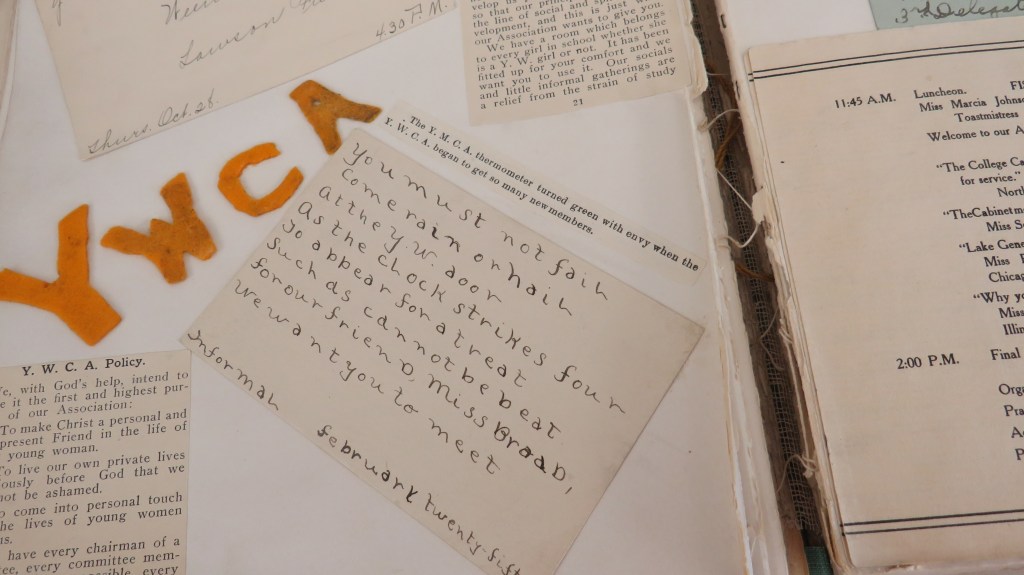 Lawson
4.30 P.M.
Thurs. Oct. 28.
YWCA
the line of social and
velopment, and this is just
our Association wants to give you.
We have a room which belongs
to every girl in school whether she
is a Y. W. girl or not. It has been
fitted up for your comfort and we
want you to use it. Our socials
and little informal gatherings are
a relief from the strain of study
21
The Y. M. C. A. thermometer turned green with envy when the
Y. W. C. A. began to get so many new members.
You must not fail
Come rain or hail
At the Y. W. door
As the clock strikes four
To appear for a treat
Such as cannot be beat
For our friend, Miss Broad,
We want you to meet
Informal
February twenty-fift
Y. W. C. A. Policy.
We, with God's help, intend to
e it the first and highest pur-
of our Association:
To make Christ a personal and
present Friend in the life of
young woman.
To live our own private lives
ously before God that we
not be ashamed.
o come into personal touch
he lives of young women
s.
have every chairman of a
tee, every committee mem-
every
3rd Delegat
11:45 A.M. Luncheon.
Miss Marcia Johns
Toastmistress
Welcome to our A
"The College Ca
for service."
North
"The Cabinetm
Miss S
"Lake Gene
Miss
Chicag
"Why y
Miss
Illin
2:00 P.M. Final
Orga
Pra
A
P